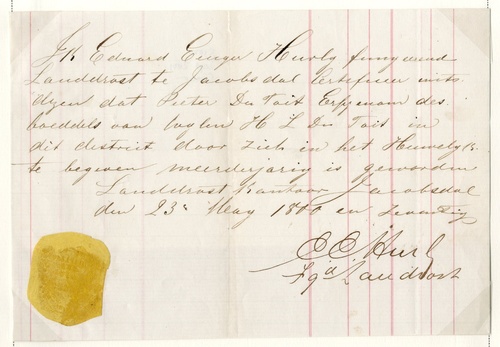 Ik Eduard Einger Hurly fungeerend
Landdrost te Jacobsdal Certificeer mits
dezen dat Pieter Du Toit Erfgenaam des
boedels van wylen H L Du Toit in
dit district door zich in het Huwelyk
te begeven meerderjarig is geworden
Landdrost Kantoor Jacobsdal
den 23e May 1800 en zeventig
E E Hurly
Fgd Landdrost